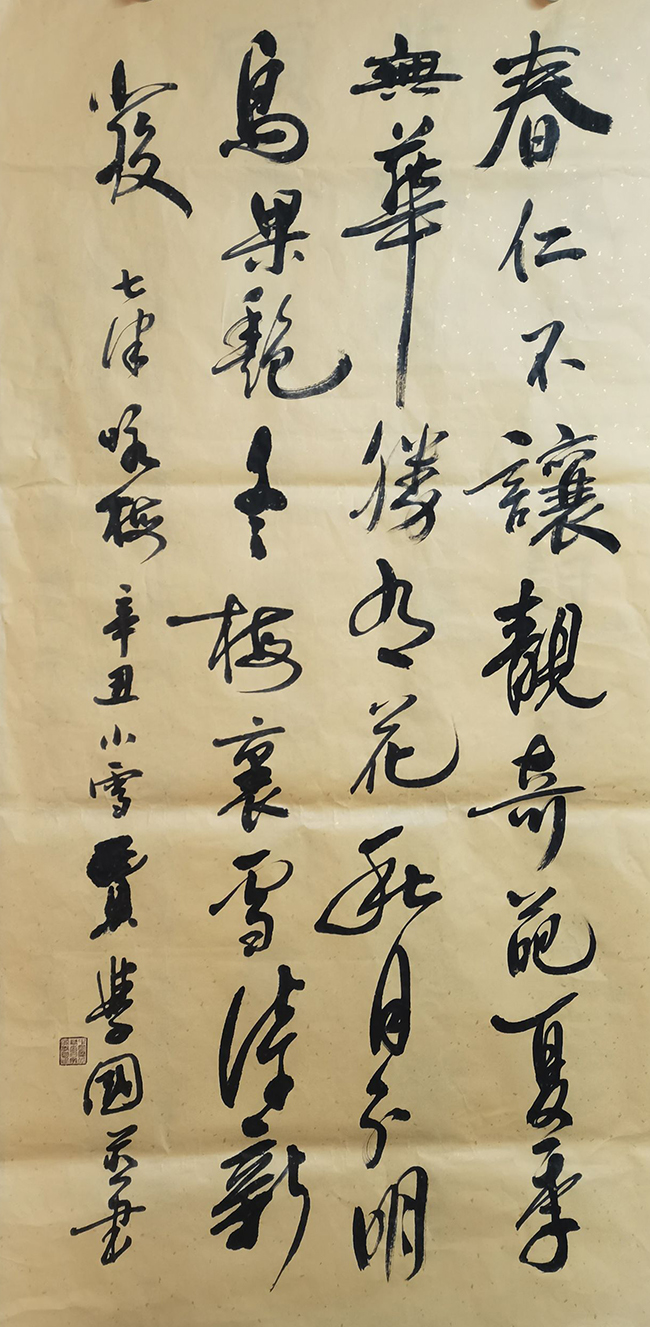 春仁不讓靚奇葩夏季
無華勝有花秋月分明
鳥果艷冬梅裏雪清新
發 七律 咏梅 辛丑小雪 賈學國并書